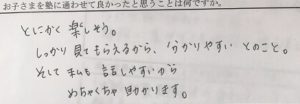 お子さまを塾に通わせて良かったと思うことは何ですか。
とにかく楽しそう。
しっかり見てもらえるから、分かりやすいとのこと。
そして私も話しやすいから
めちゃくちゃ助かります。